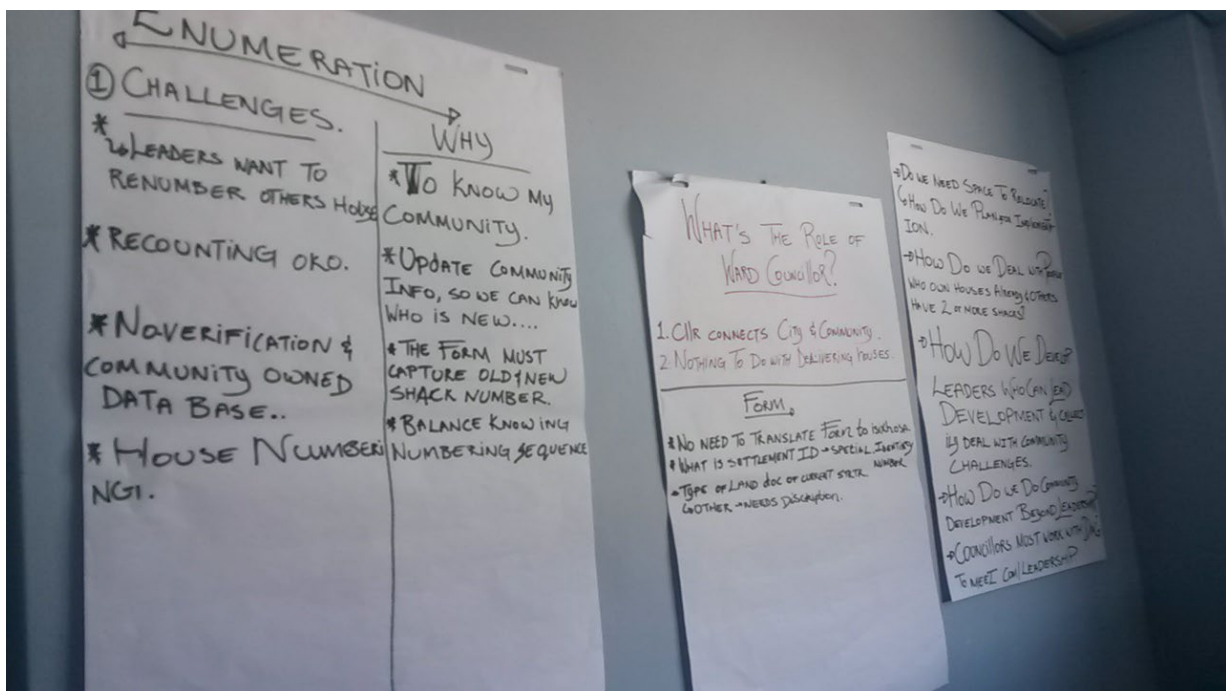 ENUMERATION
① CHALLENGES.
* ↳ LEADERS WANT TO
RENUMBER OTHERS HOUSE
* RECOUNTING OKO.
* NO VERIFICATION &
COMMUNITY OWNED
DATA BASE..
* HOUSE NUMBERI
NGI.
WHY
* TO KNOW MY
COMMUNITY.
* UPDATE COMMUNITY
INFO, SO WE CAN KNOW
WHO IS NEW....
* THE FORM MUST
CAPTURE OLD & NEW
SHACK NUMBER.
* BALANCE KNOWING
NUMBERING SEQUENCE
WHAT'S THE ROLE OF
WARD COUNCILLOR?
1. Cllr CONNECTS CITY & COMMUNITY.
2. NOTHING TO DO WITH DELIVERING HOUSES.
FORM.
* NO NEED TO TRANSLATE FORM to isixhosa
* WHAT IS SETTLEMENT ID → SPECIAL IDENTITY
NUMBER
→ TYPE OF LAND doc OF CURRENT
↳ OTHER → NEEDS DISCRIPTION.
→ DO WE NEED SPACE TO RELOCATE?
↳ HOW DO WE PLAN FOR IMPLEMENTAT
ION.
→ HOW DO WE DEAL WITH PEOPLE
WHO OWN HOUSES ALREADY & OTHERS
HAVE 2 OR MORE SHACKS?
→ HOW DO WE DEVELOP
LEADERS WHO CAN LEAD
DEVELOPMENT &
DEAL WITH COMMUNITY
CHALLENGES.
→ HOW DO WE DO COMMUNITY
DEVELOPMENT BEYOND LEADERSHIP?
→ COUNCILLORS MUST WORK WITH
TO MEET COM/LEADERSHIP